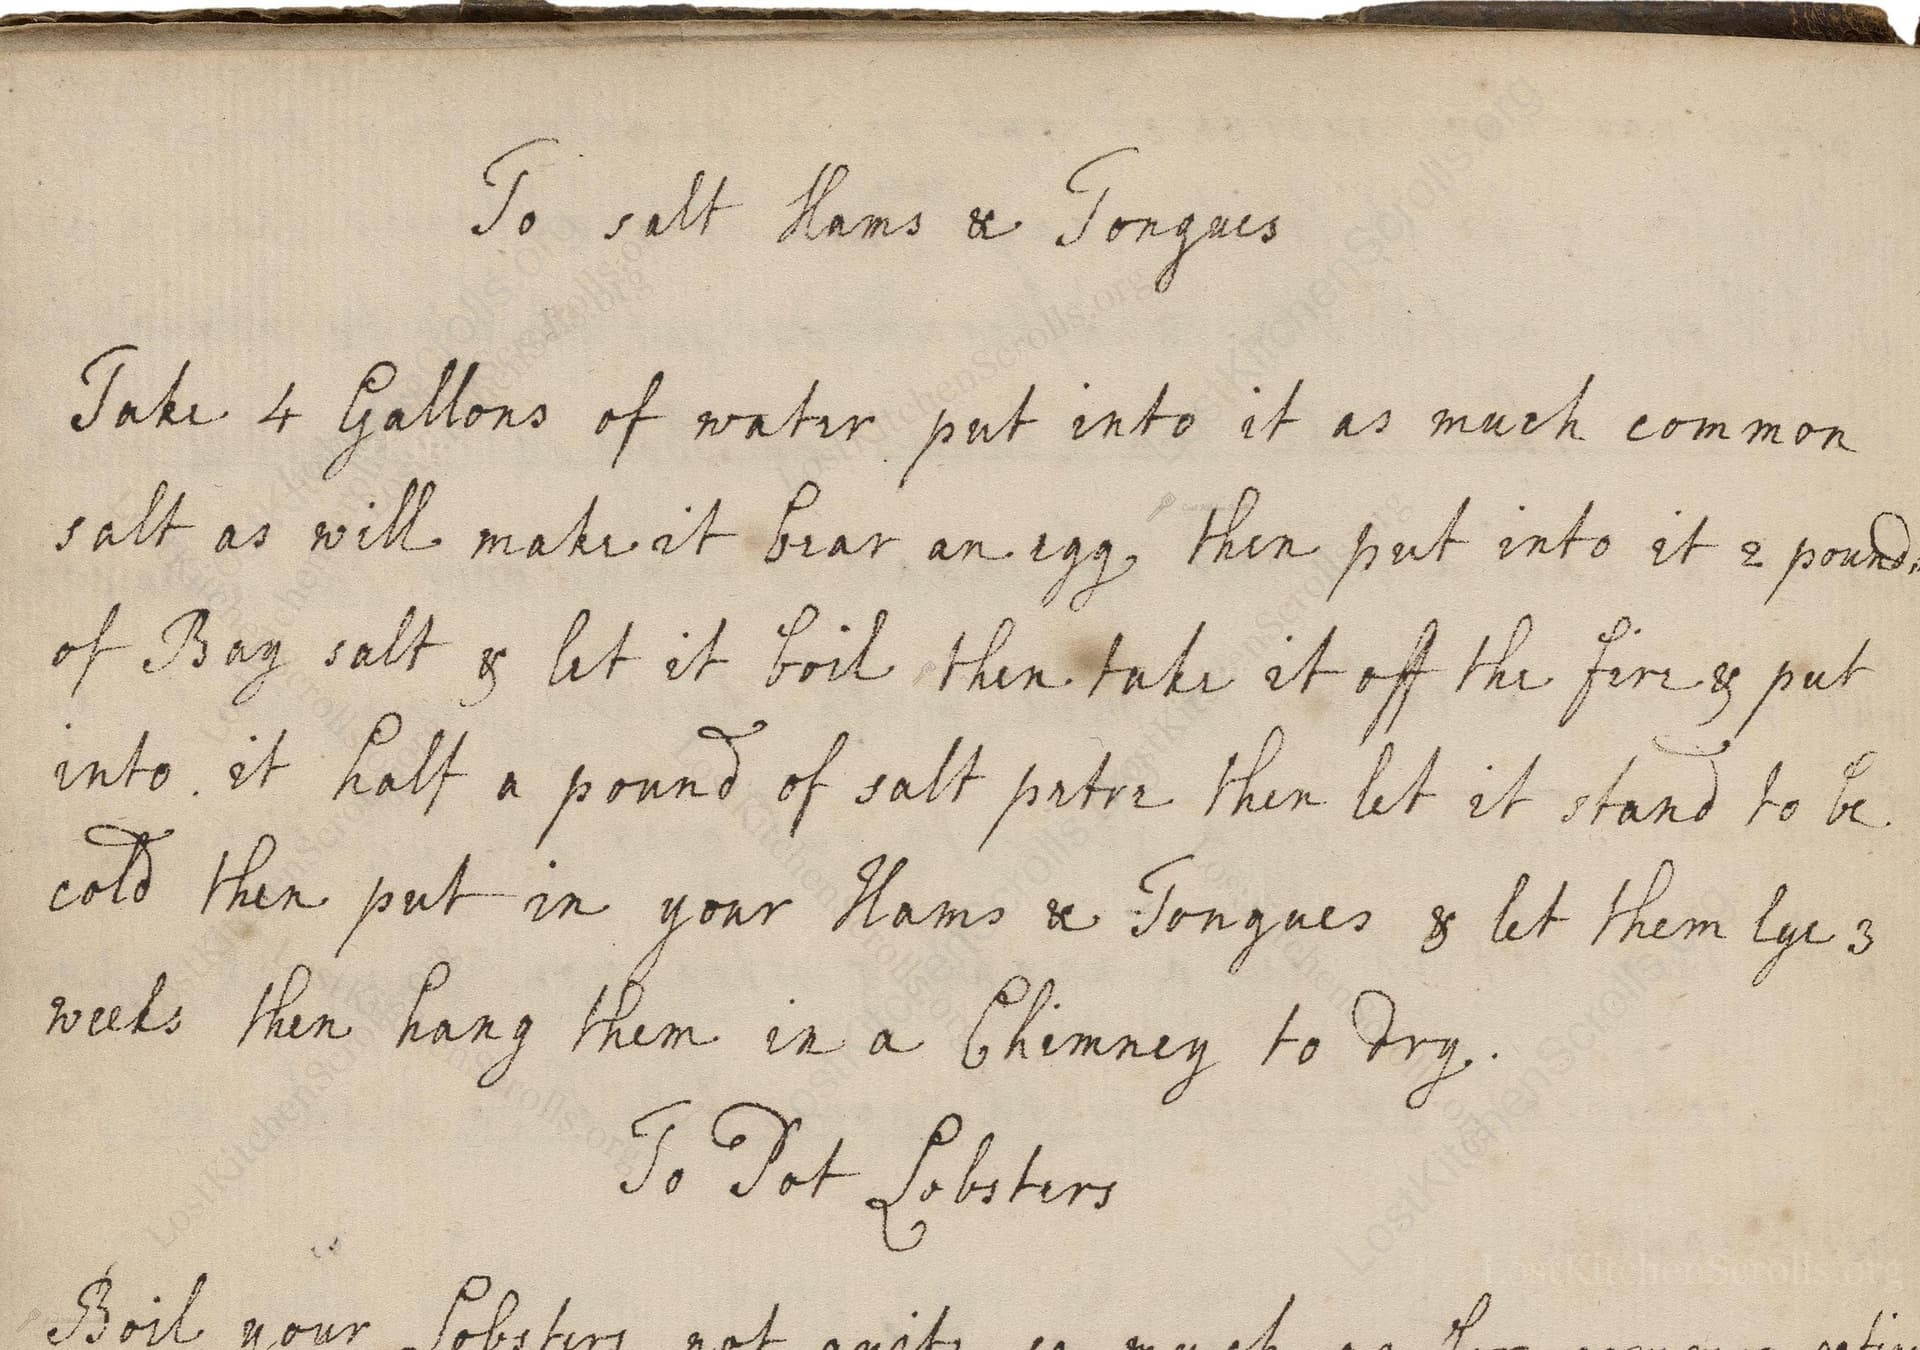 To salt Hams & Tongues
Take 4 Gallons of water put into it as much common
salt as will make it bear an egg, then put into it 2 pounds
of Bay salt & let it boil then take it off the fire & put
into it half a pound of salt petre then let it stand to be
cold then put in your Hams & Tongues & let them lye 3
weeks then hang them in a Chimney to dry.
To Pot Lobsters
LostKitchenScrolls.org
Boil your Lobsters not quite so much as